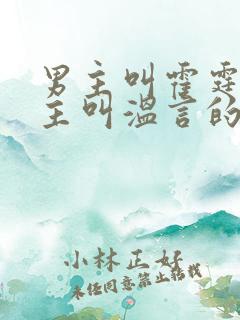 男主叫霍霆
主叫温言的
小林正好
未经同意禁止转载